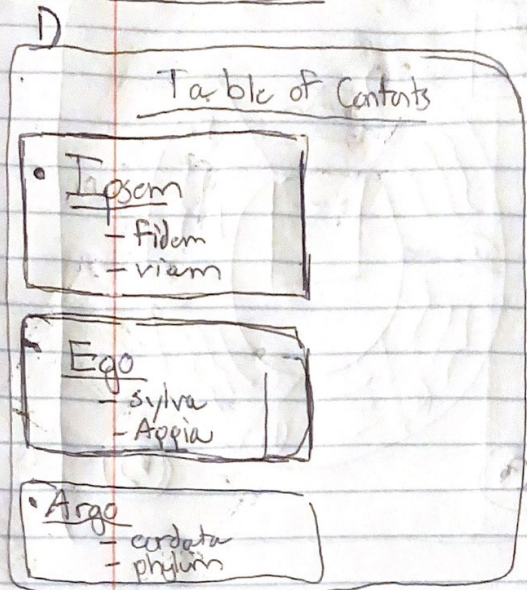 D
Table of Contents
• Ipsem
- fidem
- viam
Ego
- sylva
- Appia
• Argo
- cordata
- phylum